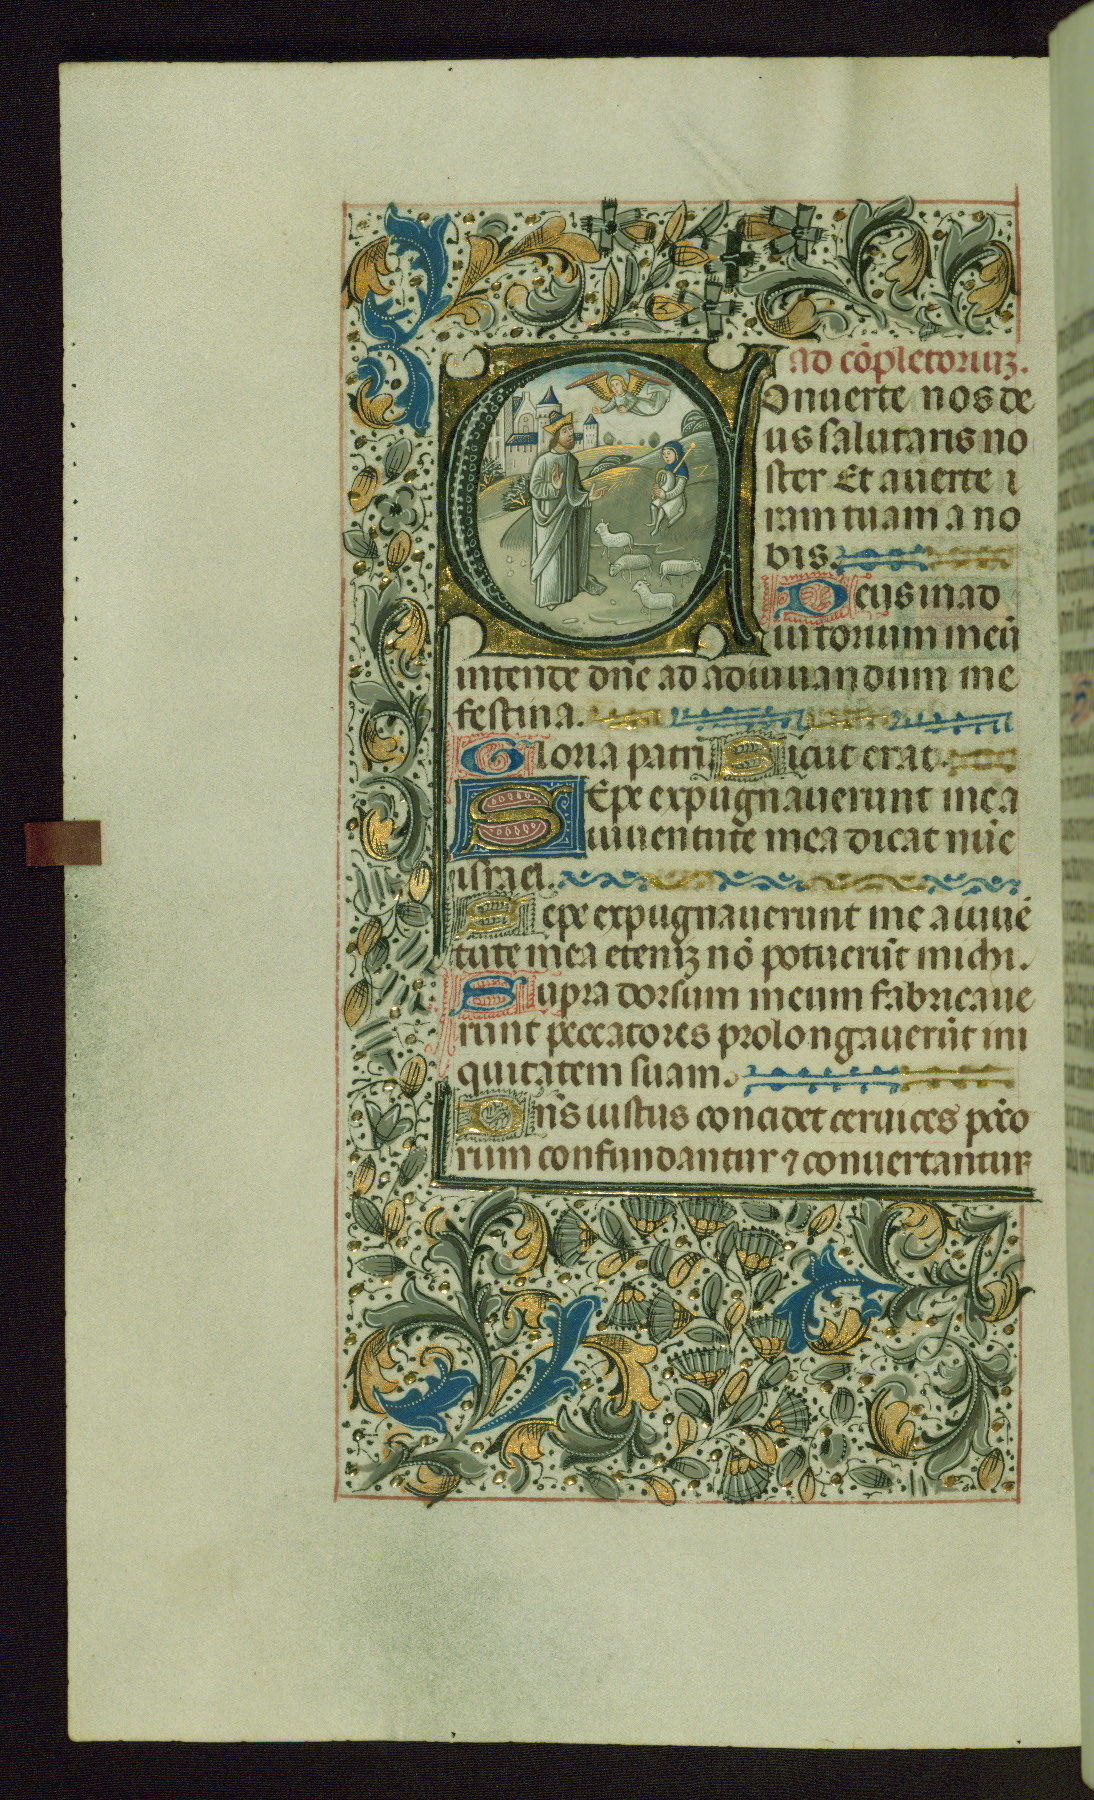 ad cōpletoriuꝫ.
Onuerte nos de
us salutaris no
ster Et auerte i
ram tuam a no
bis.
Deus in ad
iutorium meū
intende dn̄e ad adiuuandum me
festina.
Gloria patri Sicut erat.
SEpe expugnauerunt me a
iuuentute mea dicat nūc
israel.
Sepe expugnauerunt me a iuuē
tute mea eteniꝫ nō potuerūt michi.
Supra dorsum meum fabricaue
runt peccatores prolongauerūt ini
quitatem suam.
Dn̄s iustus concidet ceruices pc̄co
rum confundantur ⁊ conuertantur